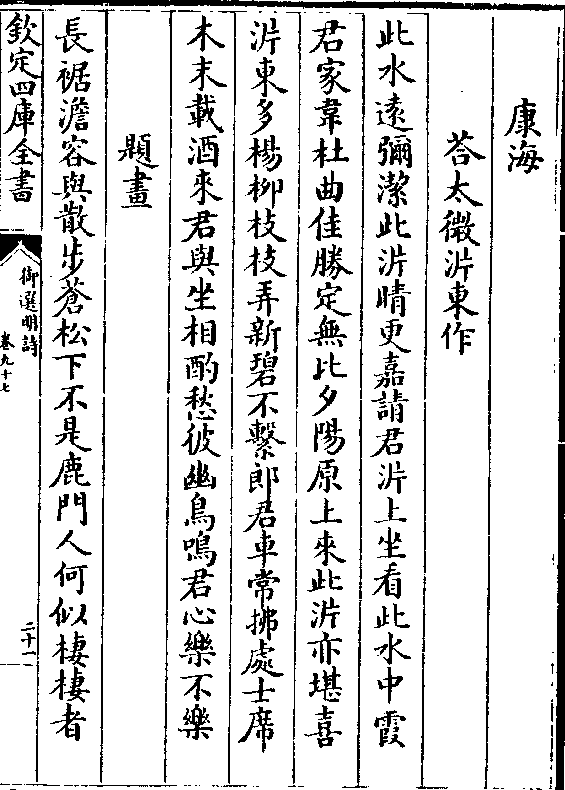 康海
荅太微泲東作
此水逺彌潔此泲晴更嘉請君泲上坐看此水中霞
君家韋杜曲佳勝定無比夕陽原上來此泲亦堪喜
泲東多楊栁枝枝弄新碧不繫郎君車常拂處士席
木末載酒來君與坐相酌愁彼幽鳥鳴君心樂不樂
題畫
長裾澹容與散步蒼松下不是鹿門人何似棲棲者
欽定四庫全書
御選明詩
卷九十七
二十一